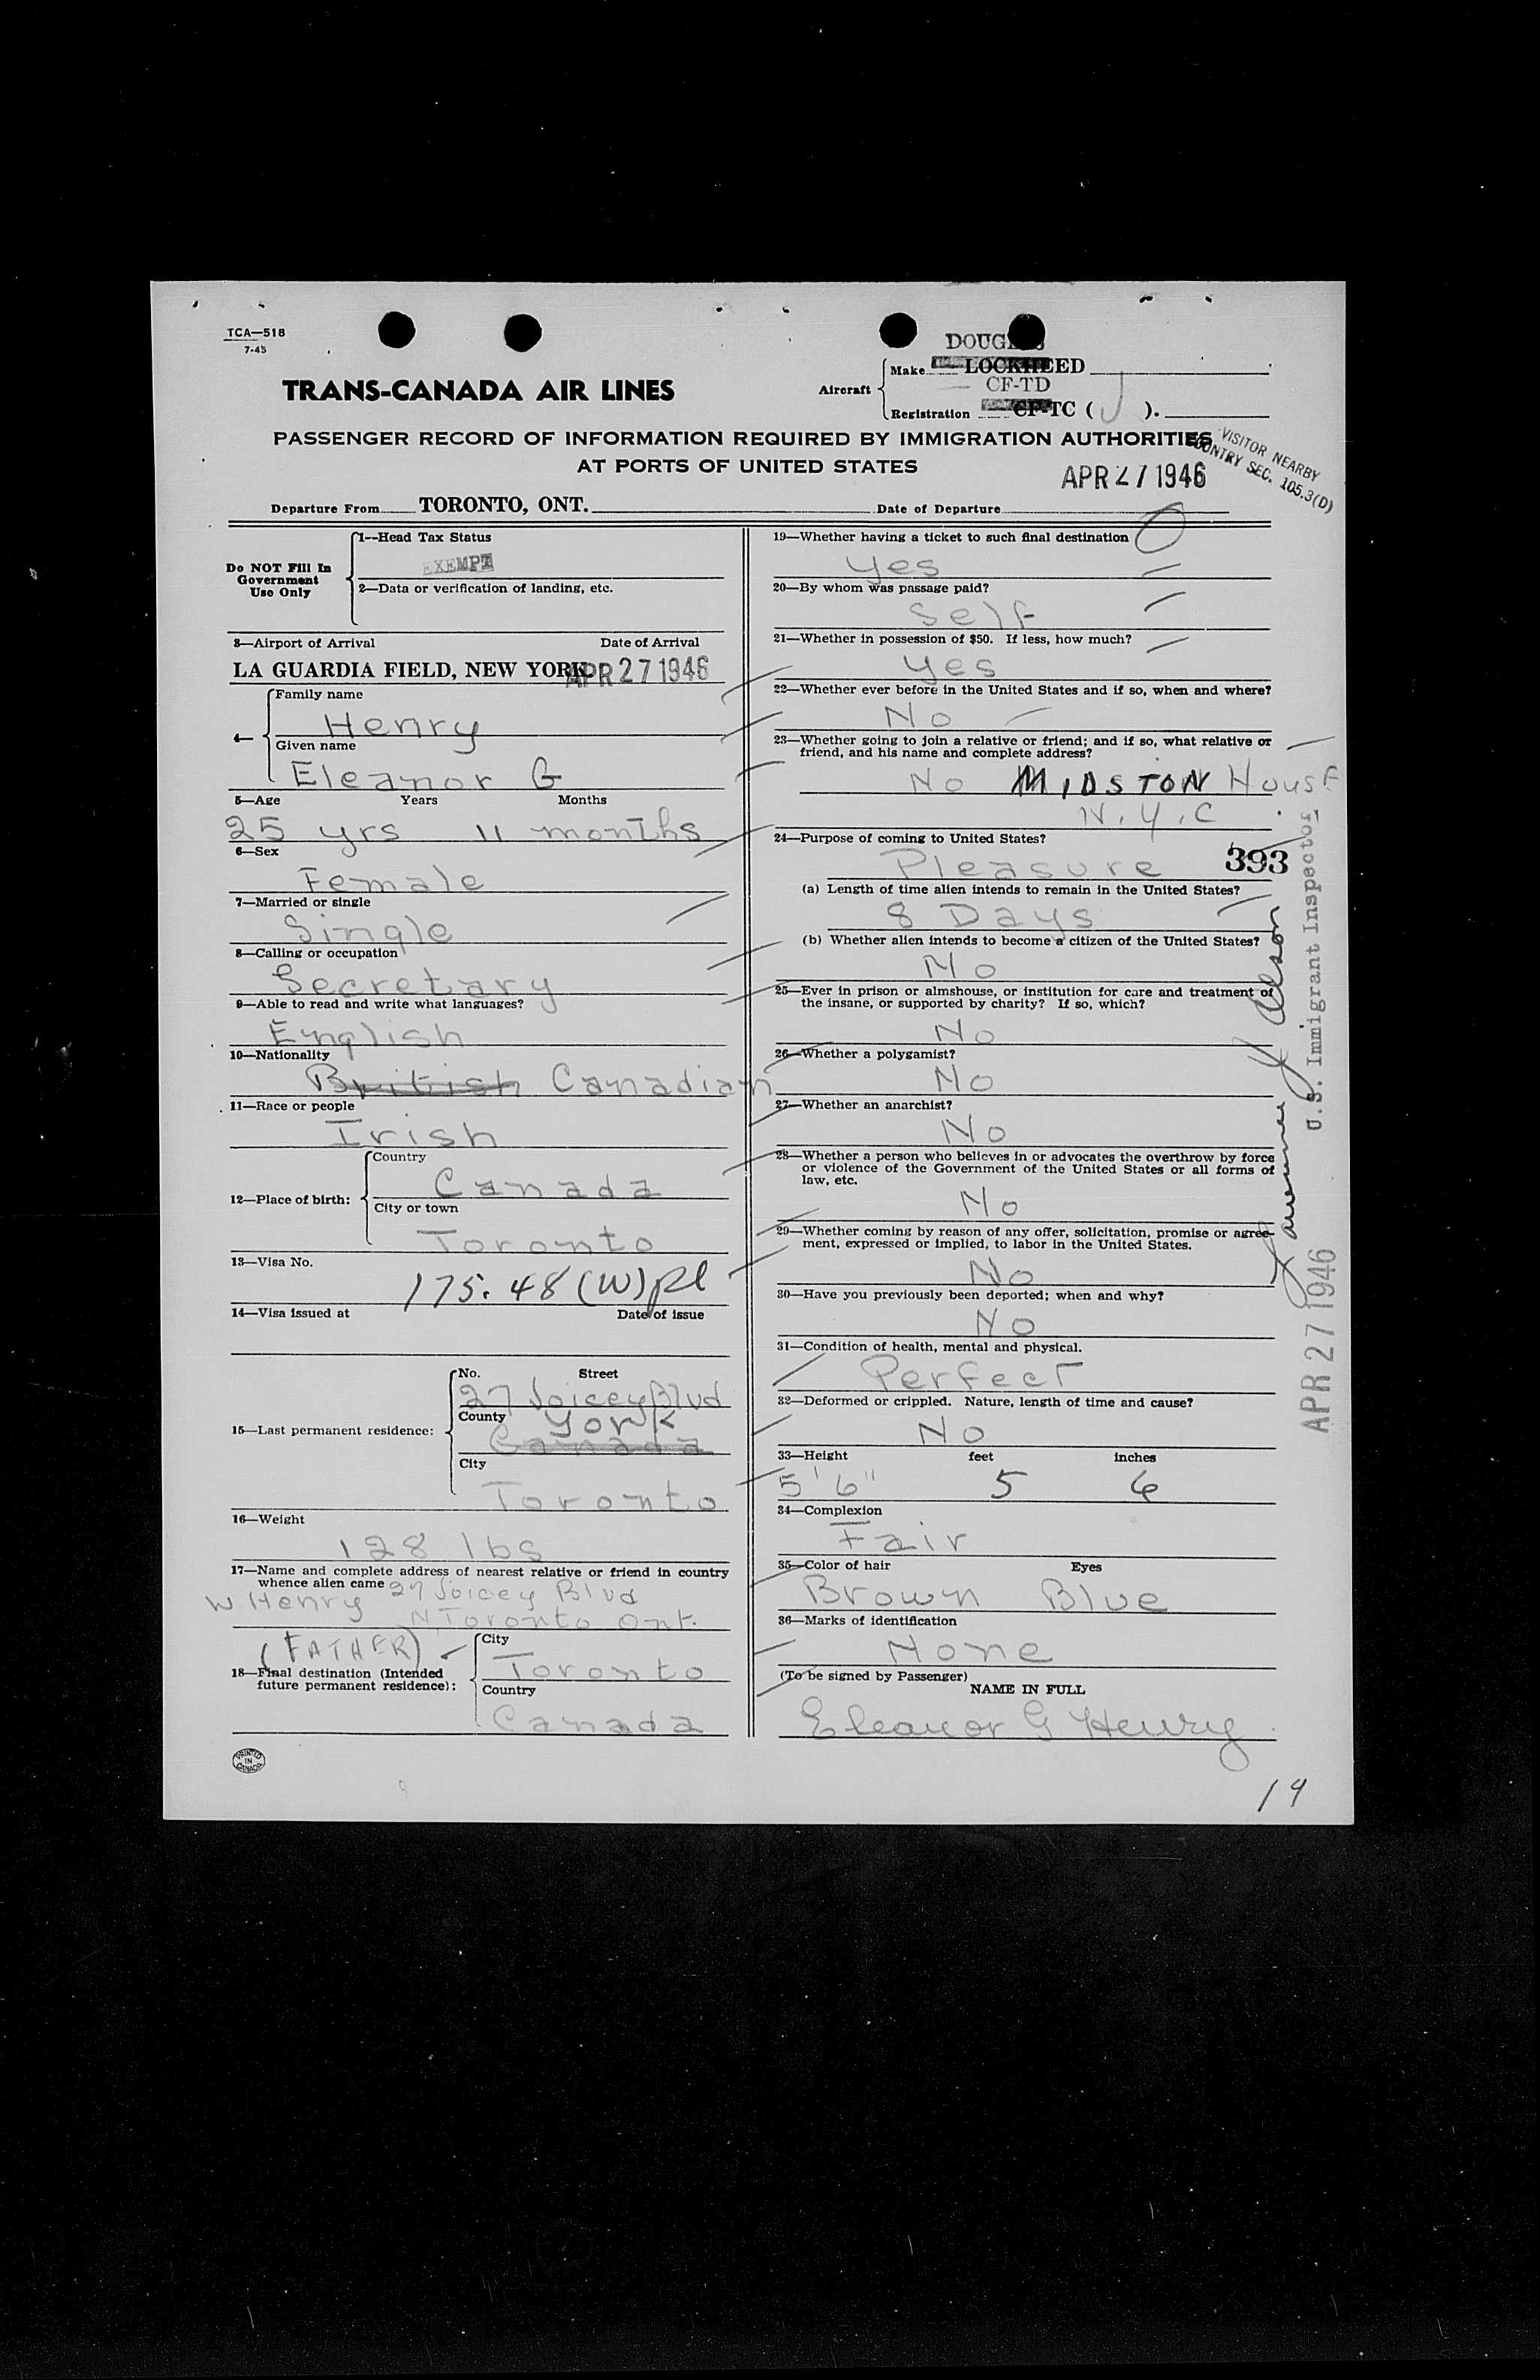 TCA—518
7-45
TRANS-CANADA AIR LINES
DOUGLAS
Aircraft
Make LOCKHEED
CF-TD
Registration CF-TC ( J ).
PASSENGER RECORD OF INFORMATION REQUIRED BY IMMIGRATION AUTHORITIES
AT PORTS OF UNITED STATES
VISITOR NEARBY
COUNTRY SEC. 105.3(D)
APR 27 1946
Departure From TORONTO, ONT.
Date of Departure
Do NOT Fill In
Government
Use Only
1--Head Tax Status
EXEMPT
2—Data or verification of landing, etc.
3—Airport of Arrival Date of Arrival
LA GUARDIA FIELD, NEW YORK APR 27 1946
4—
Family name
Henry
Given name
Eleanor G
5—Age Years Months
25 yrs 11 months
6—Sex
Female
7—Married or single
Single
8—Calling or occupation
Secretary
9—Able to read and write what languages?
English
10—Nationality
British Canadian
11—Race or people
Irish
12—Place of birth:
Country
Canada
City or town
Toronto
13—Visa No.
175.48 (W) pl
14—Visa issued at Date of issue
15—Last permanent residence:
No. Street
27 Joicey Blvd
County York
Canada
City
Toronto
16—Weight
128 lbs
17—Name and complete address of nearest relative or friend in country
whence alien came 27 Joicey Blvd
W. Henry N Toronto Ont.
(FATHER)
18—Final destination (Intended
future permanent residence):
City
Toronto
Country
Canada
PRINTED
IN
CANADA
19—Whether having a ticket to such final destination
Yes
20—By whom was passage paid?
Self
21—Whether in possession of $50. If less, how much?
Yes
22—Whether ever before in the United States and if so, when and where?
No
23—Whether going to join a relative or friend; and if so, what relative or
friend, and his name and complete address?
No MIDSTON House
N.Y.C
24—Purpose of coming to United States?
Pleasure 393
(a) Length of time alien intends to remain in the United States?
8 Days
(b) Whether alien intends to become a citizen of the United States?
No
25—Ever in prison or almshouse, or institution for care and treatment of
the insane, or supported by charity? If so, which?
No
26—Whether a polygamist?
No
27—Whether an anarchist?
No
28—Whether a person who believes in or advocates the overthrow by force
or violence of the Government of the United States or all forms of
law, etc.
No
29—Whether coming by reason of any offer, solicitation, promise or agree-
ment, expressed or implied, to labor in the United States.
No
30—Have you previously been deported; when and why?
No
31—Condition of health, mental and physical.
Perfect
32—Deformed or crippled. Nature, length of time and cause?
No
33—Height feet inches
5' 6" 5 6
34—Complexion
Fair
35—Color of hair Eyes
Brown Blue
36—Marks of identification
None
(To be signed by Passenger)
NAME IN FULL
Eleanor G Henry
U.S. Immigrant Inspector
APR 27 1946
19